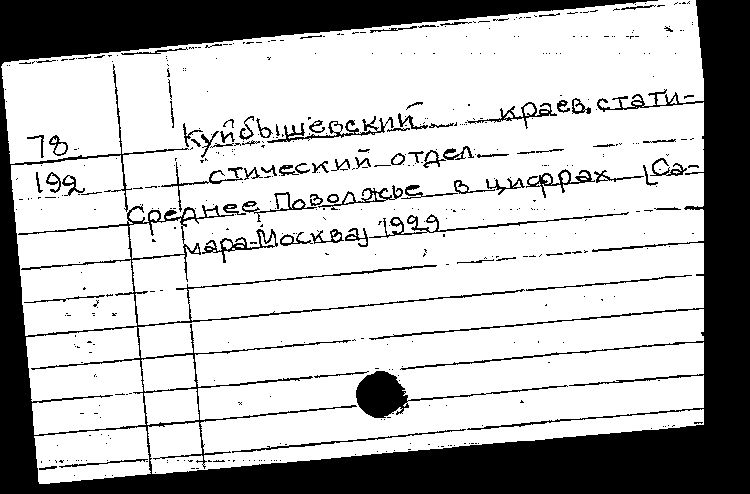 78 Куйбышевский краев. стати-
192 стический отдел.
Среднее Поволжье в цифрах [Са-
мара-Москва] 1929